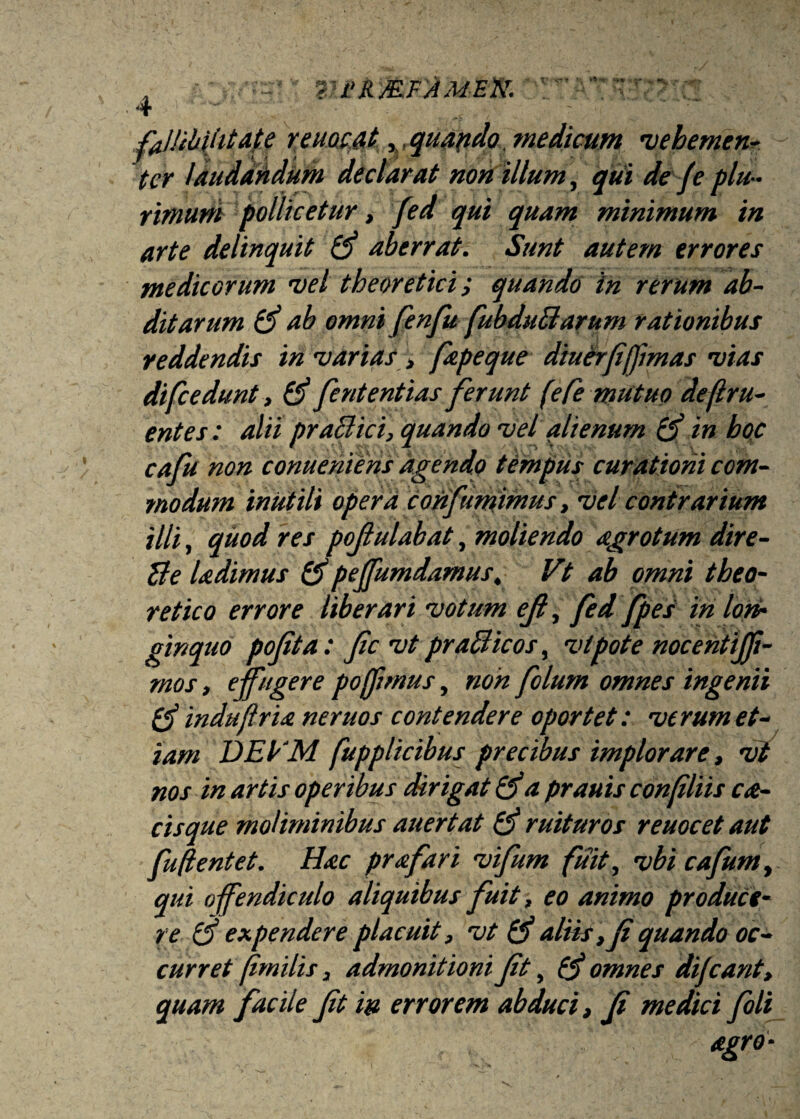 4
PRÆFAMEN.
fallibilitate reuocat, quando medicum vehemen-
ter laudandum declarat non illum, qui de ſe plu-
rimum pollicetur, ſed qui quam minimum in
arte delinquit & aberrat. Sunt autem errores
medicorum vel theoretici; quando in rerum ab-
ditarum & ab omni ſenſu ſubductarum rationibus
reddendis in varias, ſæpeque diuerſiſſimas vias
diſcedunt, & ſententias ferunt ſeſe mutuo deſtru-
entes: alii practici, quando vel alienum & in hoc
caſu non conueniens agendo tempus curationi com-
modum inutili opera conſumimus, vel contrarium
illi, quod res poſtulabat, moliendo ægrotum dire-
cte lædimus & peſſumdamus. Vt ab omni theo-
retico errore liberari votum eſt, ſed ſpes in lon-
ginquo poſita: ſic vt practicos, vtpote nocentiſſi-
mos, effugere poſſimus, non ſolum omnes ingenii
& induſtriæ neruos contendere oportet: verum et-
iam DEVM ſupplicibus precibus implorare, vt
nos in artis operibus dirigat & a prauis conſiliis cæ-
cisque moliminibus auertat & ruituros reuocet aut
ſuſtentet. Hæc præfari viſum fuit, vbi caſum,
qui offendiculo aliquibus fuit, eo animo produce-
re & expendere placuit, vt & aliis, ſi quando oc-
curret ſimilis, admonitioni ſit, & omnes diſcant,
quam facile ſit in errorem abduci, ſi medici ſoli
ægro-